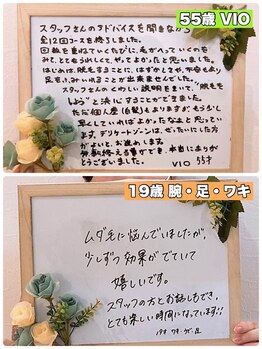 55歳 VIO
スタッフさんのアドバイスを聞きながら
全12回コースを終了しました。
回数を重ねていくたびに、毛がへっていくのを
みて、とてもうれしくて、やってよかったと思いました。
はじめは、脱毛することに、はずかしさや、不安もあり
足をふみいれることが出来ませんでした。
スタッフさんのくわしい説明をきいて、"脱毛を
しよう"と決心することができました。
ただ個人差(白髪)もありますが、もう少し
早くしていればよかったなぁと思ってい
ます。デリケートゾーンは、ぜったいにした方
がよいと、お進めします。
ありがとう
ございました。
VIO 55才
19歳 腕・足・ワキ
ムダ毛に悩んでいましたが、
少しずつ効果がでていて
嬉しいです。
スタッフの方とお話しもでき、
とても楽しい時間になっています!!
19才 ワキ・ウデ・足